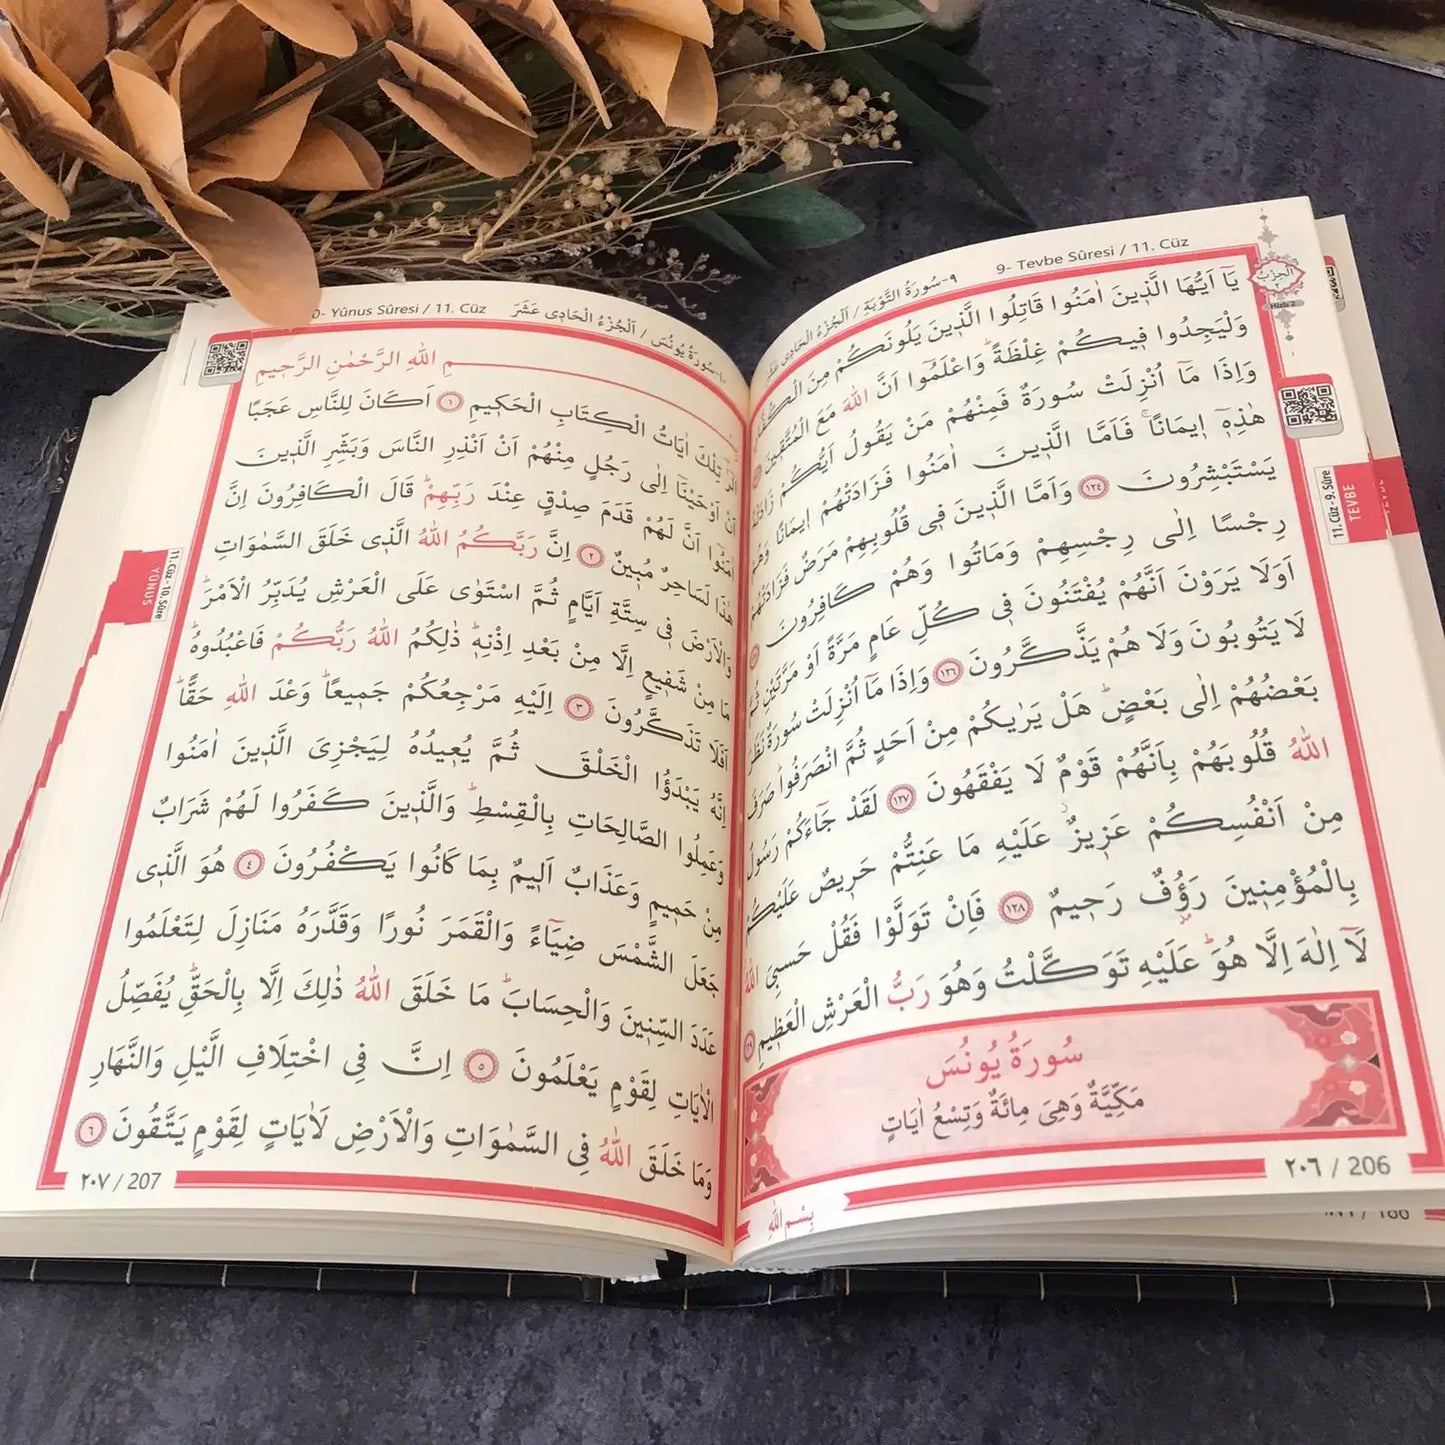 ٩-سُورَةُ التَّوْبَةِ / اَلْجُزْءُ الْحَادِى عَشَرَ
9- Tevbe Sûresi / 11. Cüz
اَلْحِزْبُ
٢
Hizb 2
يَٓا اَيُّهَا الَّذٖينَ اٰمَنُوا قَاتِلُوا الَّذٖينَ يَلُونَكُمْ مِنَ
وَلْيَجِدُوا فٖيكُمْ غِلْظَةًؕ وَاعْلَمُٓوا اَنَّ اللّٰهَ مَعَ الْمُتَّقٖينَ
وَاِذَا مَٓا اُنْزِلَتْ سُورَةٌ فَمِنْهُمْ مَنْ يَقُولُ اَيُّكُمْ زَادَتْهُ
هٰذِهٖٓ اٖيمَانًاۚ فَاَمَّا الَّذٖينَ اٰمَنُوا فَزَادَتْهُمْ اٖيمَانًا وَهُمْ
يَسْتَبْشِرُونَ ١٢٤ وَاَمَّا الَّذٖينَ فٖى قُلُوبِهِمْ مَرَضٌ فَزَادَتْهُمْ
رِجْسًا اِلٰى رِجْسِهِمْ وَمَاتُوا وَهُمْ كَافِرُونَ
اَوَلَا يَرَوْنَ اَنَّهُمْ يُفْتَنُونَ فٖى كُلِّ عَامٍ مَرَّةً اَوْ مَرَّتَيْنِ ثُمَّ
لَا يَتُوبُونَ وَلَا هُمْ يَذَّكَّرُونَ ١٢٦ وَاِذَا مَٓا اُنْزِلَتْ سُورَةٌ نَظَرَ
بَعْضُهُمْ اِلٰى بَعْضٍؕ هَلْ يَرٰيكُمْ مِنْ اَحَدٍ ثُمَّ انْصَرَفُواؕ صَرَفَ
اللّٰهُ قُلُوبَهُمْ بِاَنَّهُمْ قَوْمٌ لَا يَفْقَهُونَ ١٢٧ لَقَدْ جَٓاءَكُمْ رَسُولٌ
مِنْ اَنْفُسِكُمْ عَزٖيزٌ عَلَيْهِ مَا عَنِتُّمْ حَرٖيصٌ عَلَيْكُمْ
بِالْمُؤْمِنٖينَ رَؤُفٌ رَحٖيمٌ ١٢٨ فَاِنْ تَوَلَّوْا فَقُلْ حَسْبِىَ اللّٰهُ
لَٓا اِلٰهَ اِلَّا هُوَؕ عَلَيْهِ تَوَكَّلْتُ وَهُوَ رَبُّ الْعَرْشِ الْعَظٖيمِ ١٢٩
سُورَةُ يُونُسَ
مَكِّيَّةٌ وَهِىَ مِائَةٌ وَتِسْعُ اٰيَاتٍ
٢٠٦ / 206
بِسْمِ اللّٰهِ
11. Cüz - 9. Sûre
TEVBE
١٠-سُورَةُ يُونُسَ / اَلْجُزْءُ الْحَادِى عَشَرَ
0- Yûnus Sûresi / 11. Cüz
مِ اللّٰهِ الرَّحْمٰنِ الرَّحٖيمِ
تِلْكَ اٰيَاتُ الْكِتَابِ الْحَكٖيمِ ١ اَكَانَ لِلنَّاسِ عَجَبًا
اَنْ اَوْحَيْنَٓا اِلٰى رَجُلٍ مِنْهُمْ اَنْ اَنْذِرِ النَّاسَ وَبَشِّرِ الَّذٖينَ
اٰمَنُٓوا اَنَّ لَهُمْ قَدَمَ صِدْقٍ عِنْدَ رَبِّهِمْؕ قَالَ الْكَافِرُونَ اِنَّ
هٰذَا لَسَاحِرٌ مُبٖينٌ ٢ اِنَّ رَبَّكُمُ اللّٰهُ الَّذٖى خَلَقَ السَّمٰوَاتِ
وَالْاَرْضَ فٖى سِتَّةِ اَيَّامٍ ثُمَّ اسْتَوٰى عَلَى الْعَرْشِ يُدَبِّرُ الْاَمْرَؕ
مَا مِنْ شَفٖيعٍ اِلَّا مِنْ بَعْدِ اِذْنِهٖؕ ذٰلِكُمُ اللّٰهُ رَبُّكُمْ فَاعْبُدُوهُؕ
اَفَلَا تَذَكَّرُونَ ٣ اِلَيْهِ مَرْجِعُكُمْ جَمٖيعًاؕ وَعْدَ اللّٰهِ حَقًّاؕ
اِنَّهُ يَبْدَؤُا الْخَلْقَ ثُمَّ يُعٖيدُهُ لِيَجْزِىَ الَّذٖينَ اٰمَنُوا
وَعَمِلُوا الصَّالِحَاتِ بِالْقِسْطِؕ وَالَّذٖينَ كَفَرُوا لَهُمْ شَرَابٌ
مِنْ حَمٖيمٍ وَعَذَابٌ اَلٖيمٌ بِمَا كَانُوا يَكْفُرُونَ ٤ هُوَ الَّذٖى
جَعَلَ الشَّمْسَ ضِيَٓاءً وَالْقَمَرَ نُورًا وَقَدَّرَهُ مَنَازِلَ لِتَعْلَمُوا
عَدَدَ السِّنٖينَ وَالْحِسَابَؕ مَا خَلَقَ اللّٰهُ ذٰلِكَ اِلَّا بِالْحَقِّؕ يُفَصِّلُ
الْاٰيَاتِ لِقَوْمٍ يَعْلَمُونَ ٥ اِنَّ فِى اخْتِلَافِ الَّيْلِ وَالنَّهَارِ
وَمَا خَلَقَ اللّٰهُ فِى السَّمٰوَاتِ وَالْاَرْضِ لَاٰيَاتٍ لِقَوْمٍ يَتَّقُونَ ٦
٢٠٧ / 207
11. Cüz - 10. Sûre
YÛNUS